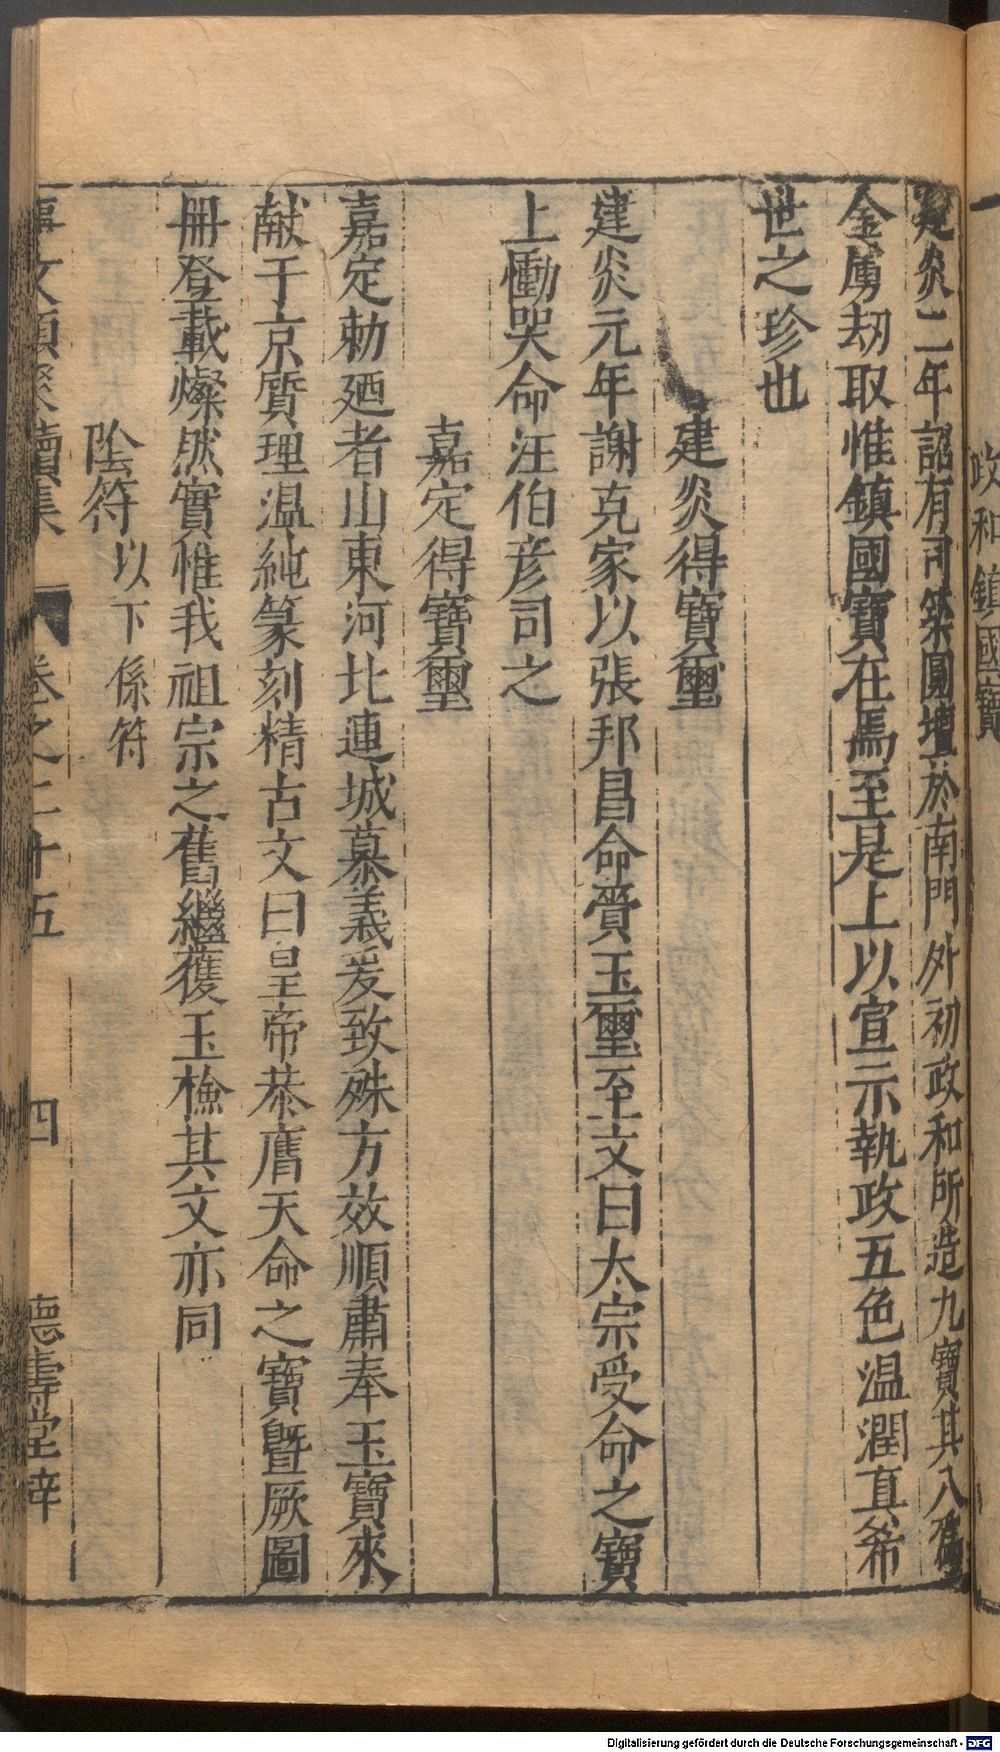 政和鎮國寶
建炎二年詔有司築圓壇於南門外初政和所造九寶其八爲
金虜刼取惟鎮國寶在焉至是上以宣示執政五色温潤真希
世之珍也
建炎得寶璽
建炎元年謝克家以張邦昌命賫玉璽至文曰太宗受命之寶
上慟哭命汪伯彦司之
嘉定得寶璽
嘉定勅廼者山東河北連城慕義爰致殊方效順肅奉玉寶來
献于京質理温純篆刻精古文曰皇帝恭膺天命之寶曁厥圖
冊登載燦然實惟我祖宗之舊繼獲玉檢其文亦同
陰符以下係符
事文類聚續集 卷之二十五 四 德壽堂梓
Digitalisierung gefördert durch die Deutsche Forschungsgemeinschaft - DFG